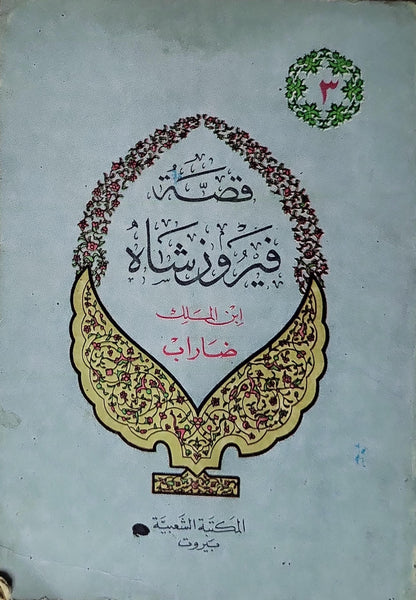 ٣
قصة
فيروز شاه
ابن الملك
ضاراب
المكتبة الشعبية
بيروت